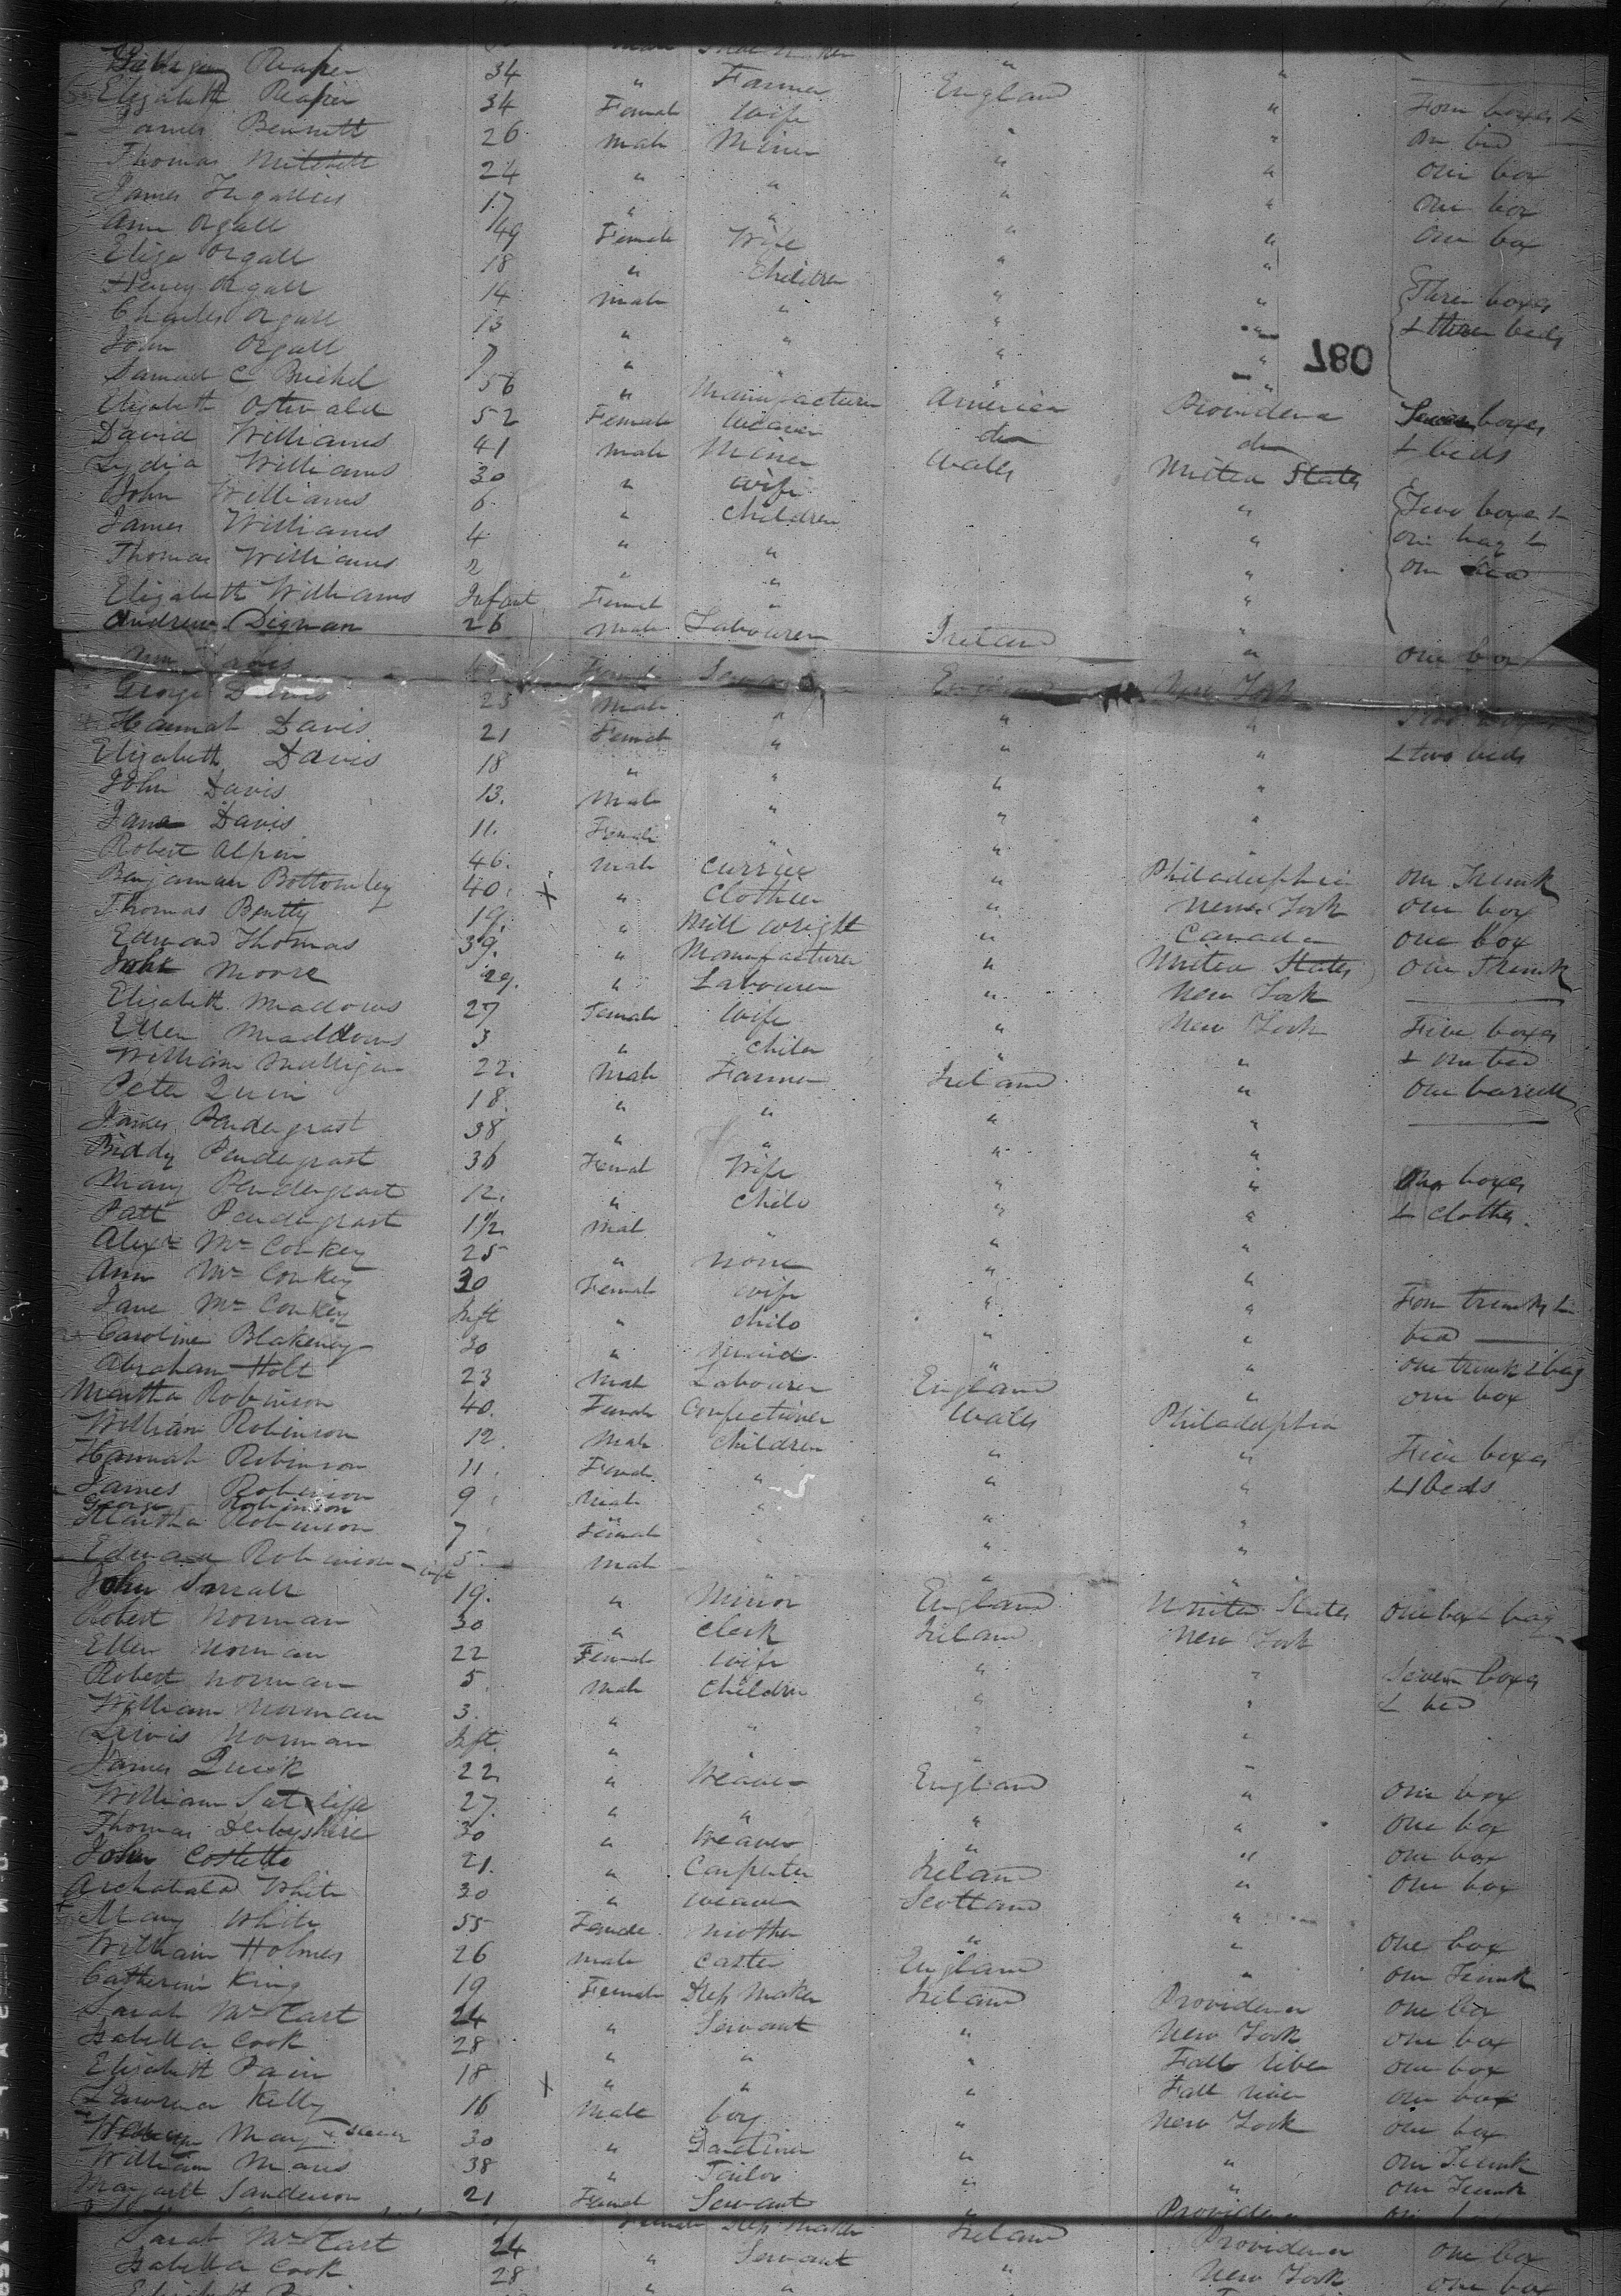 Reaper 34 " Farmer England "
Elizabeth Reaper 34 Female Wife " " Four boxes &
James Bennett 26 Male Miner " " on bed
Thomas Mitchell 24 " " " " One box
James 17 " " " " One box
Ann Orgall 49 Female Wife " " One box
Eliza Orgall 18 " Children " "
Henry Orgall 14 Male " " " Three boxes
Charles Orgall 13 " " " " & three beds
John Orgall 7 " " " "
780
Samuel C 56 " Manufacturer America Providence Seven boxes
Elizabeth Ostwald 52 Female Weaver do do & beds
David Williams 41 Male Miner Wales United States
Lydia Williams 30 " Wife "
John Williams 6 " Children " Two boxes &
James Williams 4 " " " one bag &
Thomas Williams 2 " " " one bed
Elizabeth Williams Infant Female " "
Andrew Dignan 26 Male Labourer Ireland " One box
Davis Female England New York
George Davis 25 Male " " "
Hannah Davis 21 Female " " " & two beds
Elizabeth Davis 18 " " " "
John Davis 13 Male " " "
Jane Davis 11 Female " " "
Robert Alpin 46 Male Currier " Philadelphia One Trunk
Benjaman Bottomley 40 x " Clothier " New York One box
Thomas Bentty 19 " Mill wright " Canada One box
Edward Thomas 39 " Manufacturer " United States One Trunk
John Moore 29 " Labourer " New York
Elizabeth Meadows 27 Female Wife " New York Five boxes
Ellen Maddows 3 " Child " " & one bed
William Mulligan 22 Male Farmer Ireland " One barell
Peter Quin 18 " " " "
James Pendergrast 38 " " " "
Biddy Pendegrast 36 Female Wife " " boxes
Mary Pendergrast 12 " Child " " & clothes
Patt Pendegrast 1½ Male " "
Alexr McConkey 25 " None " "
Ann McConkey 30 Female Wife " " Four trunks &
Jane McConkey Inft " Child " " bed
Caroline Blakeney 30 " Maid " " One trunk & bag
Abraham Holt 23 Male Labourer England " One box
Martha Robinson 40 Female Confectioner Wales Philadelphia
William Robinson 12 Male Children " " Five boxes
Hannah Robinson 11 Female " " " & beds
James Robinson 9 Male " " "
George Robinson
Martha Robinson 7 Female " "
Edward Robinson 5 Male " "
John 19 " Minor England United States One box & bag
Robert Norman 30 " Clerk Ireland New York
Ellen Norman 22 Female Wife " " Seven boxes
Robert Norman 5 Male Children " " & bed
William Norman 3 " " " "
Lewis Norman Inft " " "
James Quirk 22 " Weaver England " One box
William Sutcliffe 27 " " " " One box
Thomas Derbyshire 30 " Weaver " " One box
John Costello 21 " Carpenter Ireland " One box
Archabald White 30 " Weaver Scotland "
Mary White 55 Female Mother " " One box
William Holmes 26 Male Caster England " One Trunk
Catherine King 19 Female Step Maker Ireland Providence One box
Sarah McCart 24 " Servant " New York One box
Isabella Cook 28 " " " Fall River One box
Elizabeth Pain 18 x " " " Fall River One box
Lawrence Kelly 16 Male boy " New York One box
30 " Gardiner " " One Trunk
William 38 " Tailor " " One Trunk
Margaret Sanderson 21 Female Servant Providence
Female Step Maker Ireland Providence
Sarah McCart 24 " Servant New York One box
Isabella Cook 28 " " One box